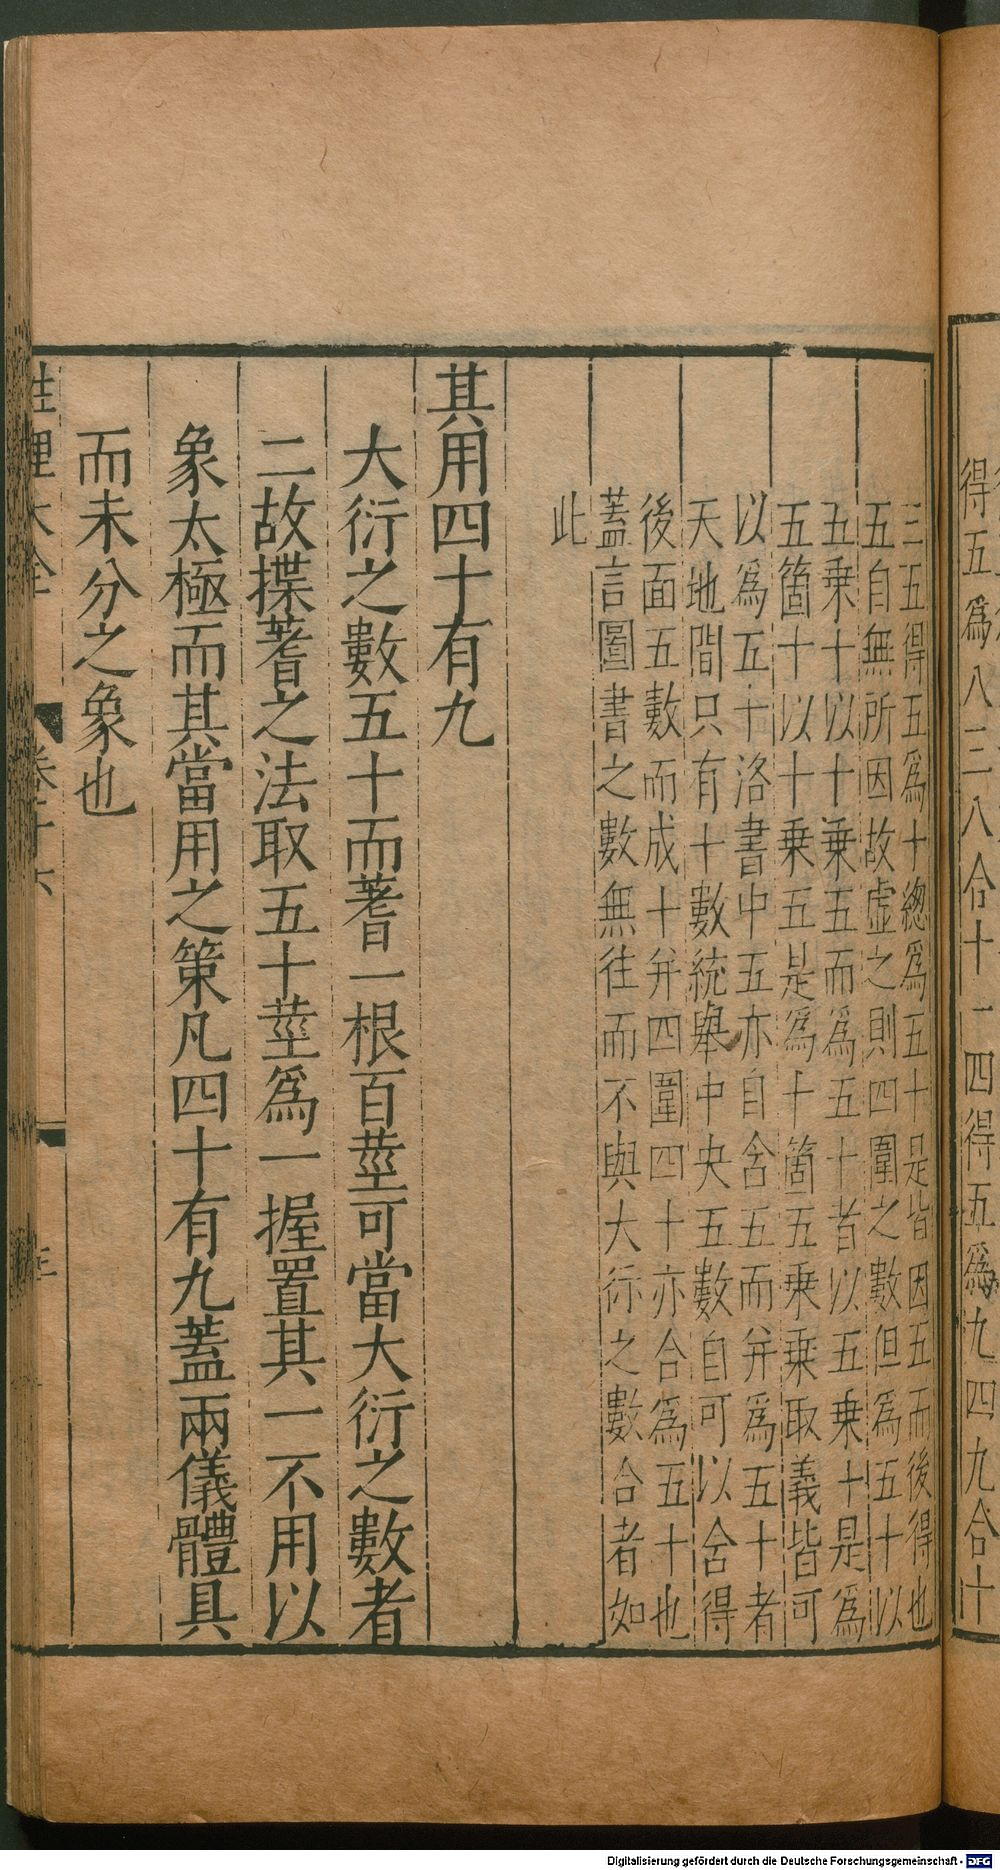 得五爲八三八合十一四得五爲九四九合十
三五得五爲十總爲五十是皆因五而後得也
五自無所因故虛之則四圍之數但爲五十以
五乗十以十乗五而爲五十者以五乗十是爲
五箇十以十乗五是爲十箇五乗乗取義皆可
以爲五十洛書中五亦自含五而并爲五十者
天地間只有十數統舉中央五數自可以舍得
後面五數而成十并四圍四十亦合爲五十也
蓋言圖書之數無往而不與大衍之數合者如
此
其用四十有九
大衍之數五十而蓍一根百莖可當大衍之數者
二故揲蓍之法取五十莖爲一握置其一不用以
象太極而其當用之策凡四十有九蓋兩儀體具
而未分之象也
性理大全
卷十六
Digitalisierung gefördert durch die Deutsche Forschungsgemeinschaft - DFG